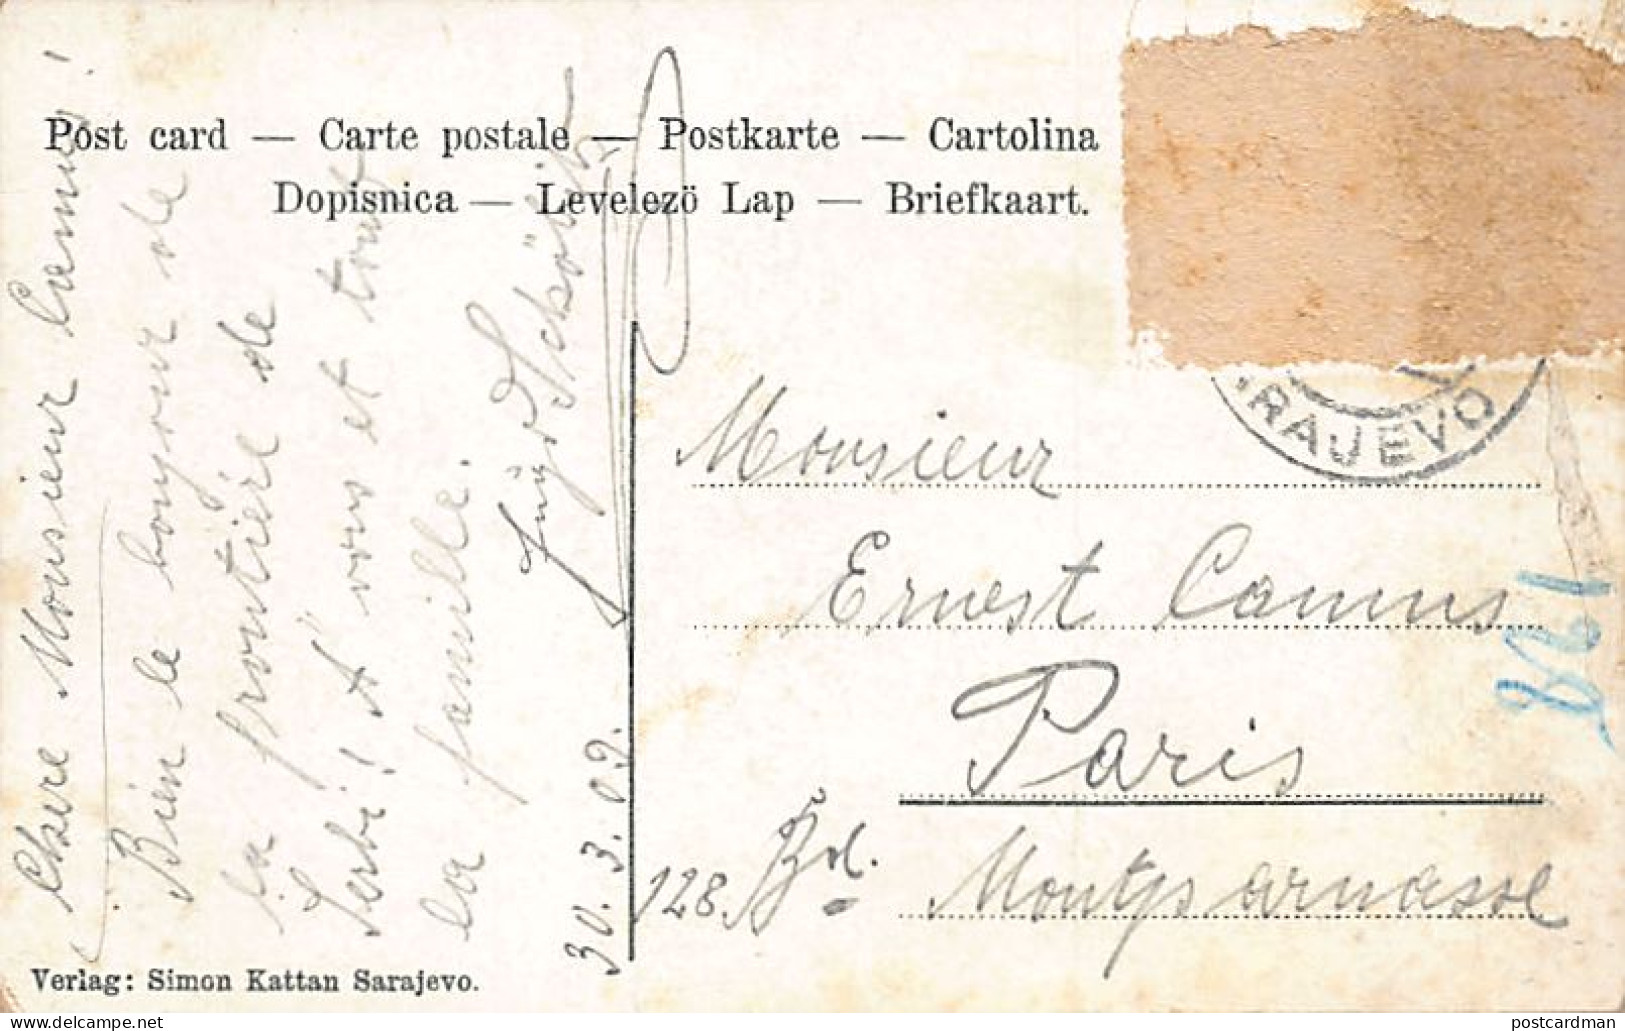 Post card — Carte postale — Postkarte — Cartolina
Dopisnica — Levelezö Lap — Briefkaart.
Chere Monsieur Camus!
Bien le bonjour de
la frontiére de
Serbi! A vous et tout
la famille.
30.3.09.
RAJEVO
Monsieur
Ernest Camus
Paris
128 Bd. Montparnasse
Verlag: Simon Kattan Sarajevo.
delcampe.net
postcardman